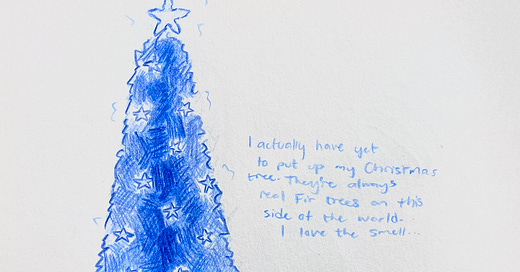 I actually have yet
to put up my Christmas
tree. They're always
real Fir trees on this
side of the world.
I love the smell...